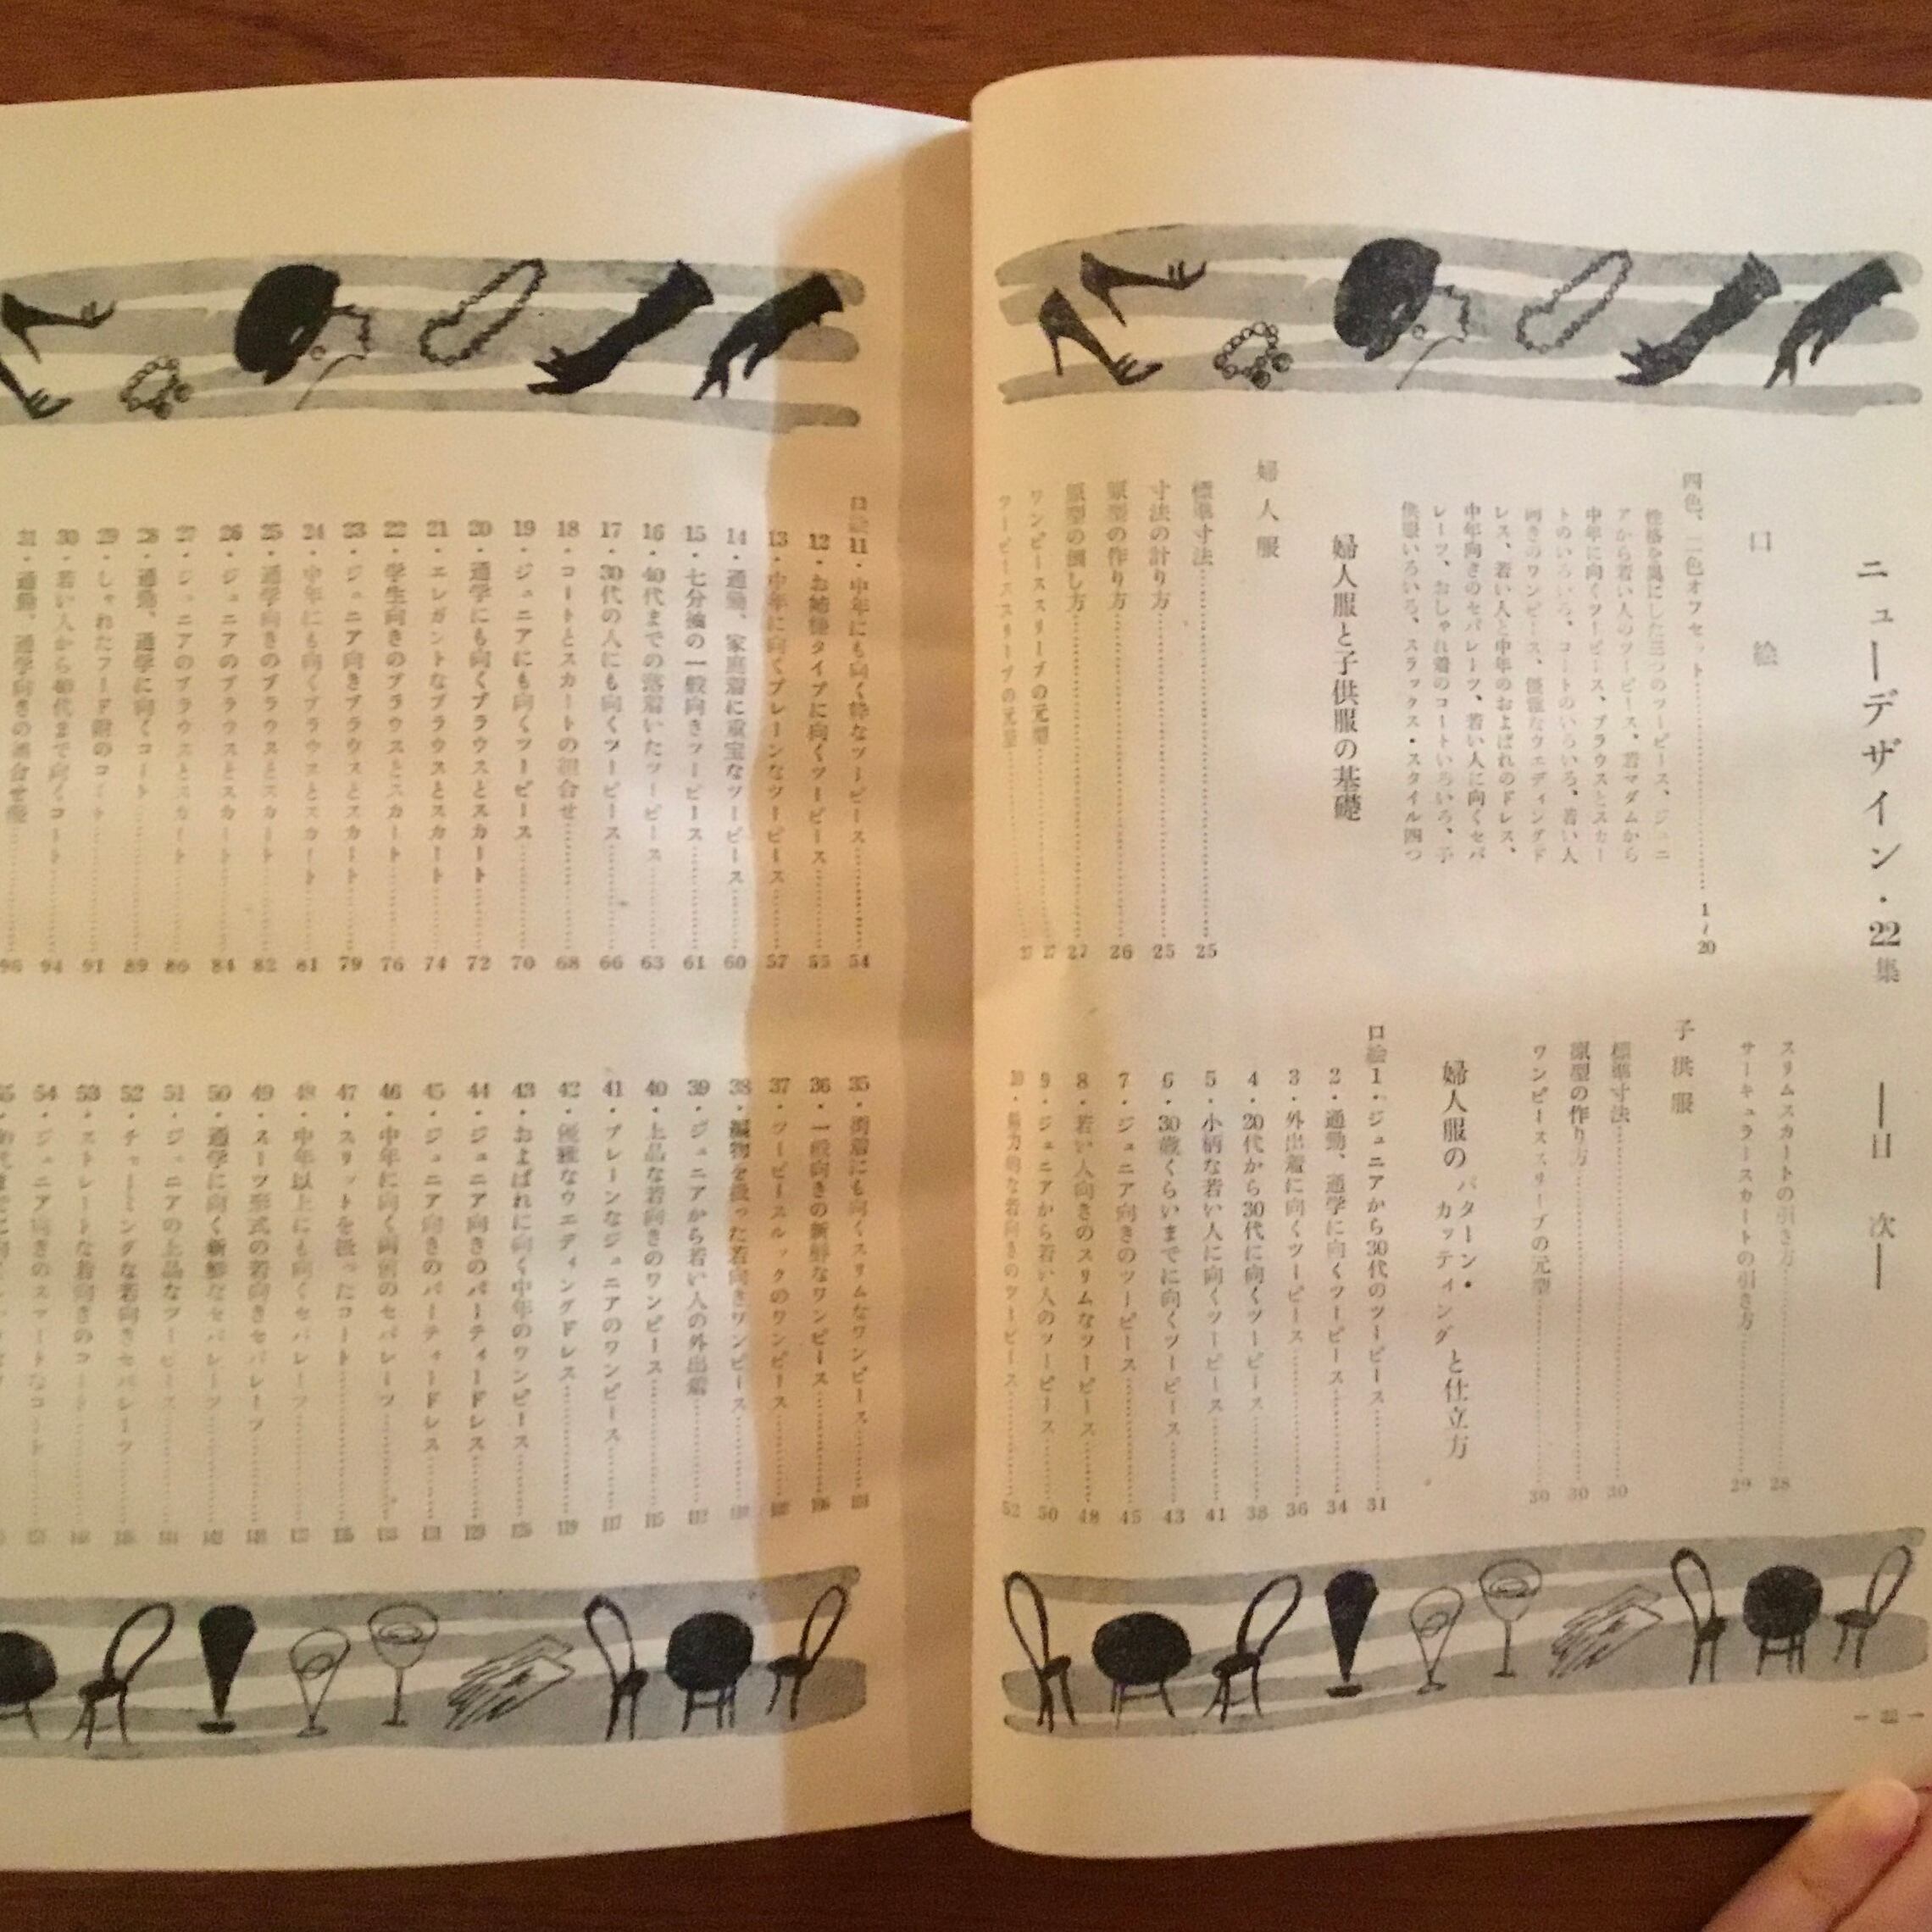 ニューデザイン・22集 ──目次──
口絵
四色、二色オフセット…………1~20
性格を異にした三つのツーピース、ジュニ
アから若い人のツーピース、若マダムから
中年に向くツーピース、ブラウスとスカー
トのいろいろ、コートのいろいろ、若い人
向きのワンピース、優雅なウエディングド
レス、若い人と中年のおよばれのドレス、
中年向きのセパレーツ、若い人に向くセパ
レーツ、おしゃれ着のコートいろいろ、子
供服いろいろ、スラックス・スタイル四つ
婦人服と子供服の基礎
婦人服
標準寸法…………25
寸法の計り方…………25
原型の作り方…………26
原型の倒し方…………27
ワンピーススリーブの元型…………27
ツーピーススリーブの元型…………27
スリムスカートの引き方…………28
サーキュラースカートの引き方…………29
子供服
標準寸法…………30
原型の作り方…………30
ワンピーススリーブの元型…………30
婦人服のパターン・カッティングと仕立方
口絵1・ジュニアから30代のツーピース…………31
2・通勤、通学に向くツーピース…………34
3・外出着に向くツーピース…………36
4・20代から30代に向くツーピース…………38
5・小柄な若い人に向くツーピース…………41
6・30歳くらいまでに向くツーピース…………43
7・ジュニア向きのツーピース…………45
8・若い人向きのスリムなツーピース…………48
9・ジュニアから若い人のツーピース…………50
10・魅力的な若向きのツーピース…………52
口絵11・中年にも向く粋なツーピース…………54
12・お姉様タイプに向くツーピース…………55
13・中年に向くプレーンなツーピース…………57
14・通勤、家庭着に重宝なツーピース…………60
15・七分袖の一般向きツーピース…………61
16・40代までの落着いたツーピース…………63
17・30代の人にも向くツーピース…………66
18・コートとスカートの組合せ…………68
19・ジュニアにも向くツーピース…………70
20・通学にも向くブラウスとスカート…………72
21・エレガントなブラウスとスカート…………74
22・学生向きのブラウスとスカート…………76
23・ジュニア向きブラウスとスカート…………79
24・中年にも向くブラウスとスカート…………81
25・通学向きのブラウスとスカート…………82
26・ジュニアのブラウスとスカート…………84
27・ジュニアのブラウスとスカート…………86
28・通勤、通学に向くコート…………89
29・しゃれたフード附のコート…………91
30・若い人から40代まで向くコート…………94
31・通勤、通学向きの組合せ服…………96
35・街着にも向くスリムなワンピース…………
36・一般向きの新鮮なワンピース…………
37・ツーピースルックのワンピース…………
38・編物を使った若向きワンピース…………
39・ジュニアから若い人の外出着…………
40・上品な若向きのワンピース…………115
41・プレーンなジュニアのワンピース…………117
42・優雅なウエディングドレス…………119
43・およばれに向く中年のワンピース…………
44・ジュニア向きのパーティードレス…………
45・ジュニア向きのパーティードレス…………
46・中年に向く両前のセパレーツ…………
47・スリットを使ったコート…………
48・中年以上にも向くセパレーツ…………
49・スーツ形式の若向きセパレーツ…………
50・通学に向く新鮮なセパレーツ…………
51・ジュニアの上品なツーピース…………
52・チャーミングな若向きセパレーツ…………
53・ストレートな若向きのコート…………
54・ジュニア向きのスマートなコート…………